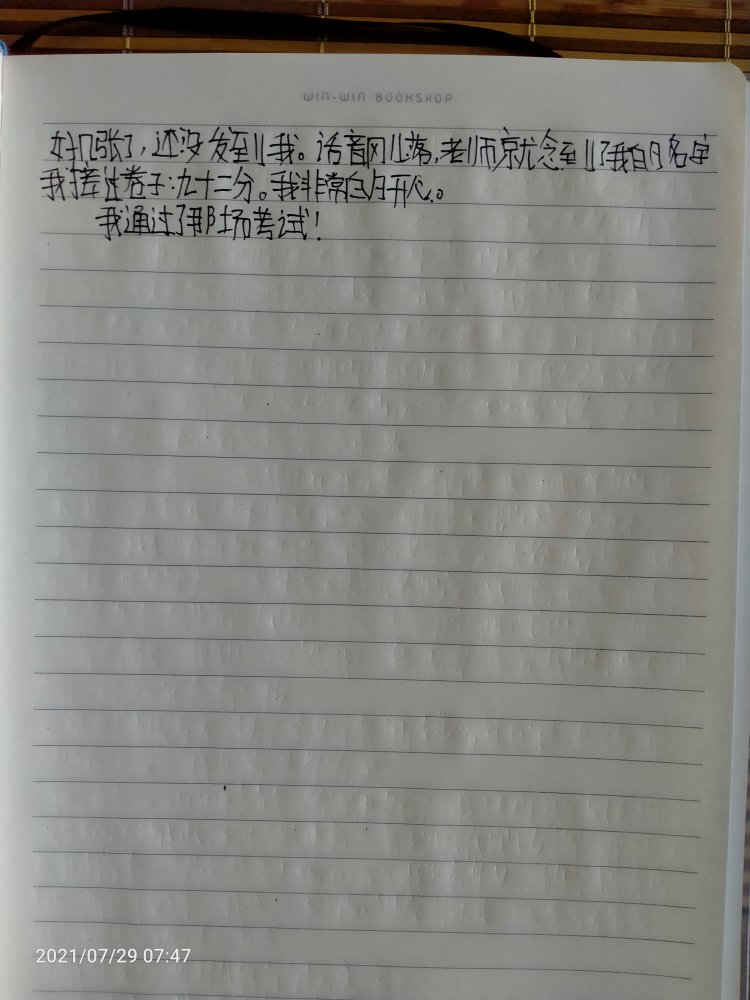 WIN-WIN BOOKSHOP
好几张了，还没发到我。话音刚落，老师就念到了我的名字
我接过卷子：九十二分。我非常的开心。
我通过了那场考试！
2021/07/29 07:47